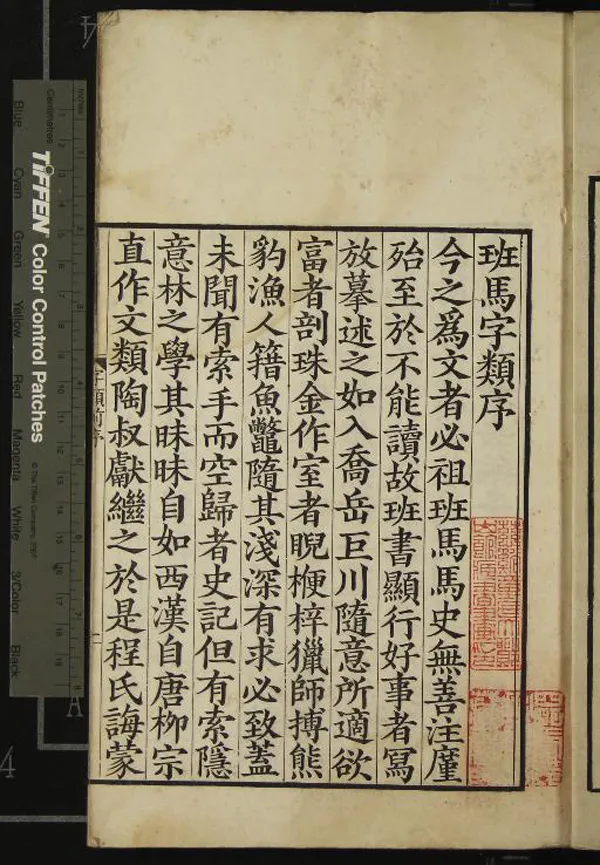 班馬字類序
今之爲文者必祖班馬馬史無善注廑
殆至於不能讀故班書顯行好事者寫
放摹述之如入喬岳巨川隨意所適欲
富者剖珠金作室者睨楩梓獵師搏熊
豹漁人籍魚鼈隨其淺深有求必致蓋
未聞有索手而空歸者史記但有索隱
意林之學其昧昧自如西漢自唐柳宗
直作文類陶叔獻繼之於是程氏誨蒙
字類前序
一
TIFFEN Color Control Patches
© The Tiffen Company, 2007
Centimetres
Inches
Blue Cyan Green Yellow Red Magenta White 3/Color Black
4
A
4